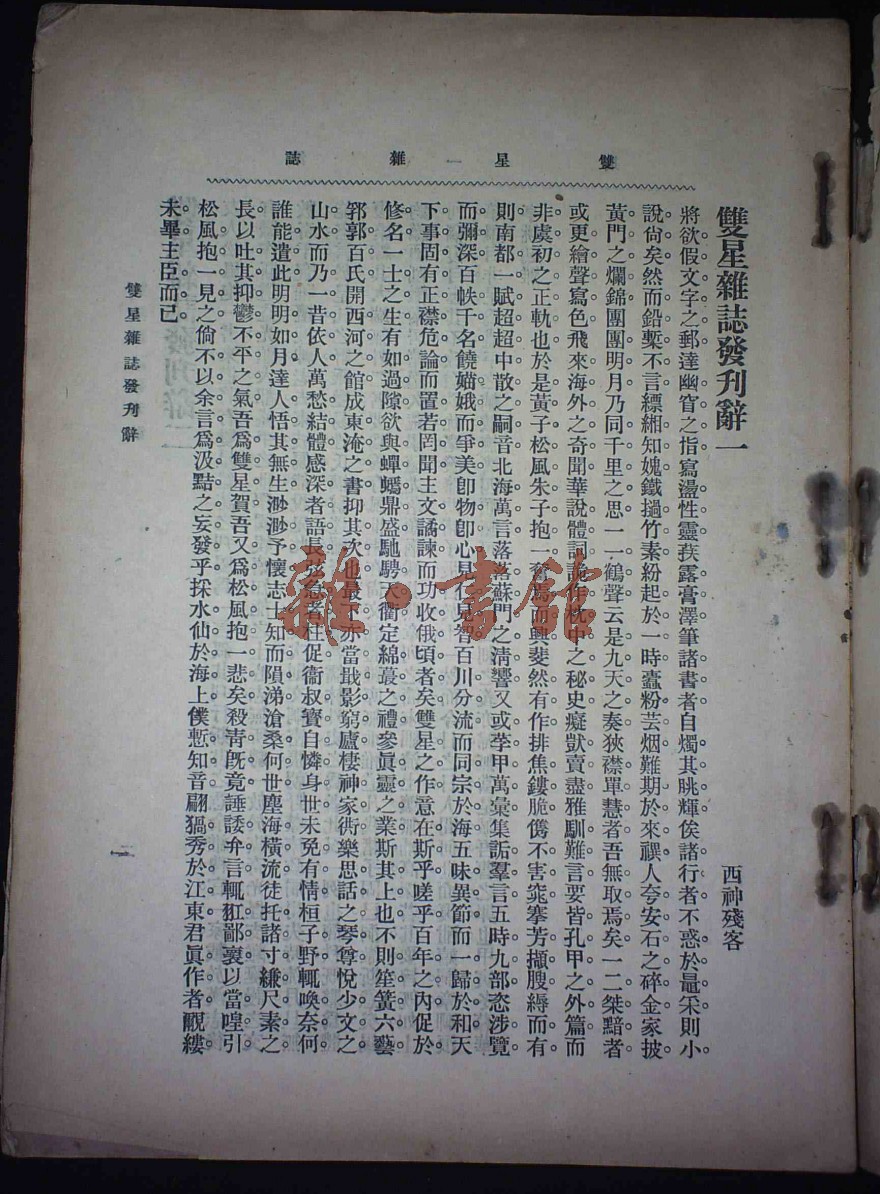 雙星雜誌
雙星雜誌發刊辭一
西神殘客
將欲假文字之郵達幽窅之指寫盪性靈疾露膏澤筆諸書者自燭其眺輝俟諸行者不惑於最采則小
說尙矣然而鉛槧不言縹緗知媿鐵撾竹素紛起於一時蠹粉芸烟難期於來禩人夸安石之碎金家披
黃門之爛錦團團明月乃同千里之思一一鶴聲云是九天之奏狹襟單慧者吾無取焉矣一二桀黠者
或更繪聲寫色飛來海外之奇聞華說體詞詭作枕中之秘史癡獃賣盡雅馴難言要皆孔甲之外篇而
非虞初之正軌也於是黃子松風朱子抱一奮焉而興斐然有作排焦鏤脆儁不害窕搴芳擷腴縟而有
則南都一賦超超中散之嗣音北海萬言落落蘇門之淸響又或荸甲萬彙集詬羣言五時九部恣涉覽
而彌深百帙千名饒媌娥而爭美卽物卽心見仁見智百川分流而同宗於海五味異節而一歸於和天
下事固有正襟危論而置若罔聞主文譎諫而功收俄頃者矣雙星之作意在斯乎嗟乎百年之內促於
修名一士之生有如過隙欲與蟬蠵鼎盛馳騁天衢定綿蕞之禮參眞靈之業斯其上也不則笙簧六藝
郛郭百氏開西河之館成東淹之書抑其次也最下亦當戢影窮廬棲神家衖樂思話之琴尊悅少文之
山水而乃一昔依人萬愁結體感深者語長弦急者柱促衞叔寶自憐身世未免有情桓子野輒喚奈何
誰能遣此明明如月達人悟其無生渺渺予懷志士知而隕涕滄桑何世塵海橫流徒托諸寸縑尺素之
長以吐其抑鬱不平之氣吾爲雙星賀吾又爲松風抱一悲矣殺靑旣竟諈諉弁言輒抂鄙褱以當喤引
松風抱一見之倘不以余言爲汲黯之妄發乎採水仙於海上僕慙知音翩獢秀於江東君眞作者覼縷
未畢主臣而已
雙星雜誌發刊辭
一
雜·書館